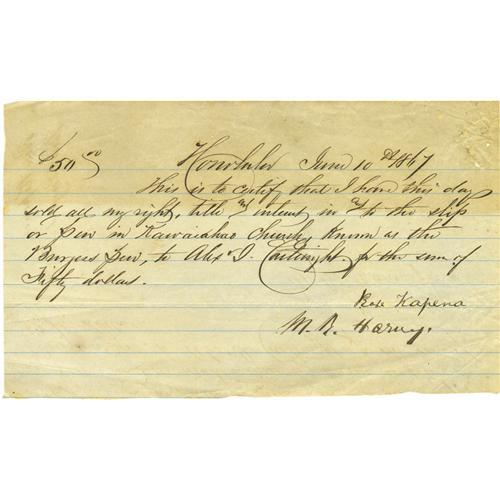 $50 00 Honolulu June 10th 1867
This is to certify that I have this day
sold all my right, title & interest in & to the slip
or Pew in Kawaiahao Church, known as the
Burgess Pew, to Alexr J. Cartwright for the sum of
Fifty dollars.
Kapena
M. R. Harvey.